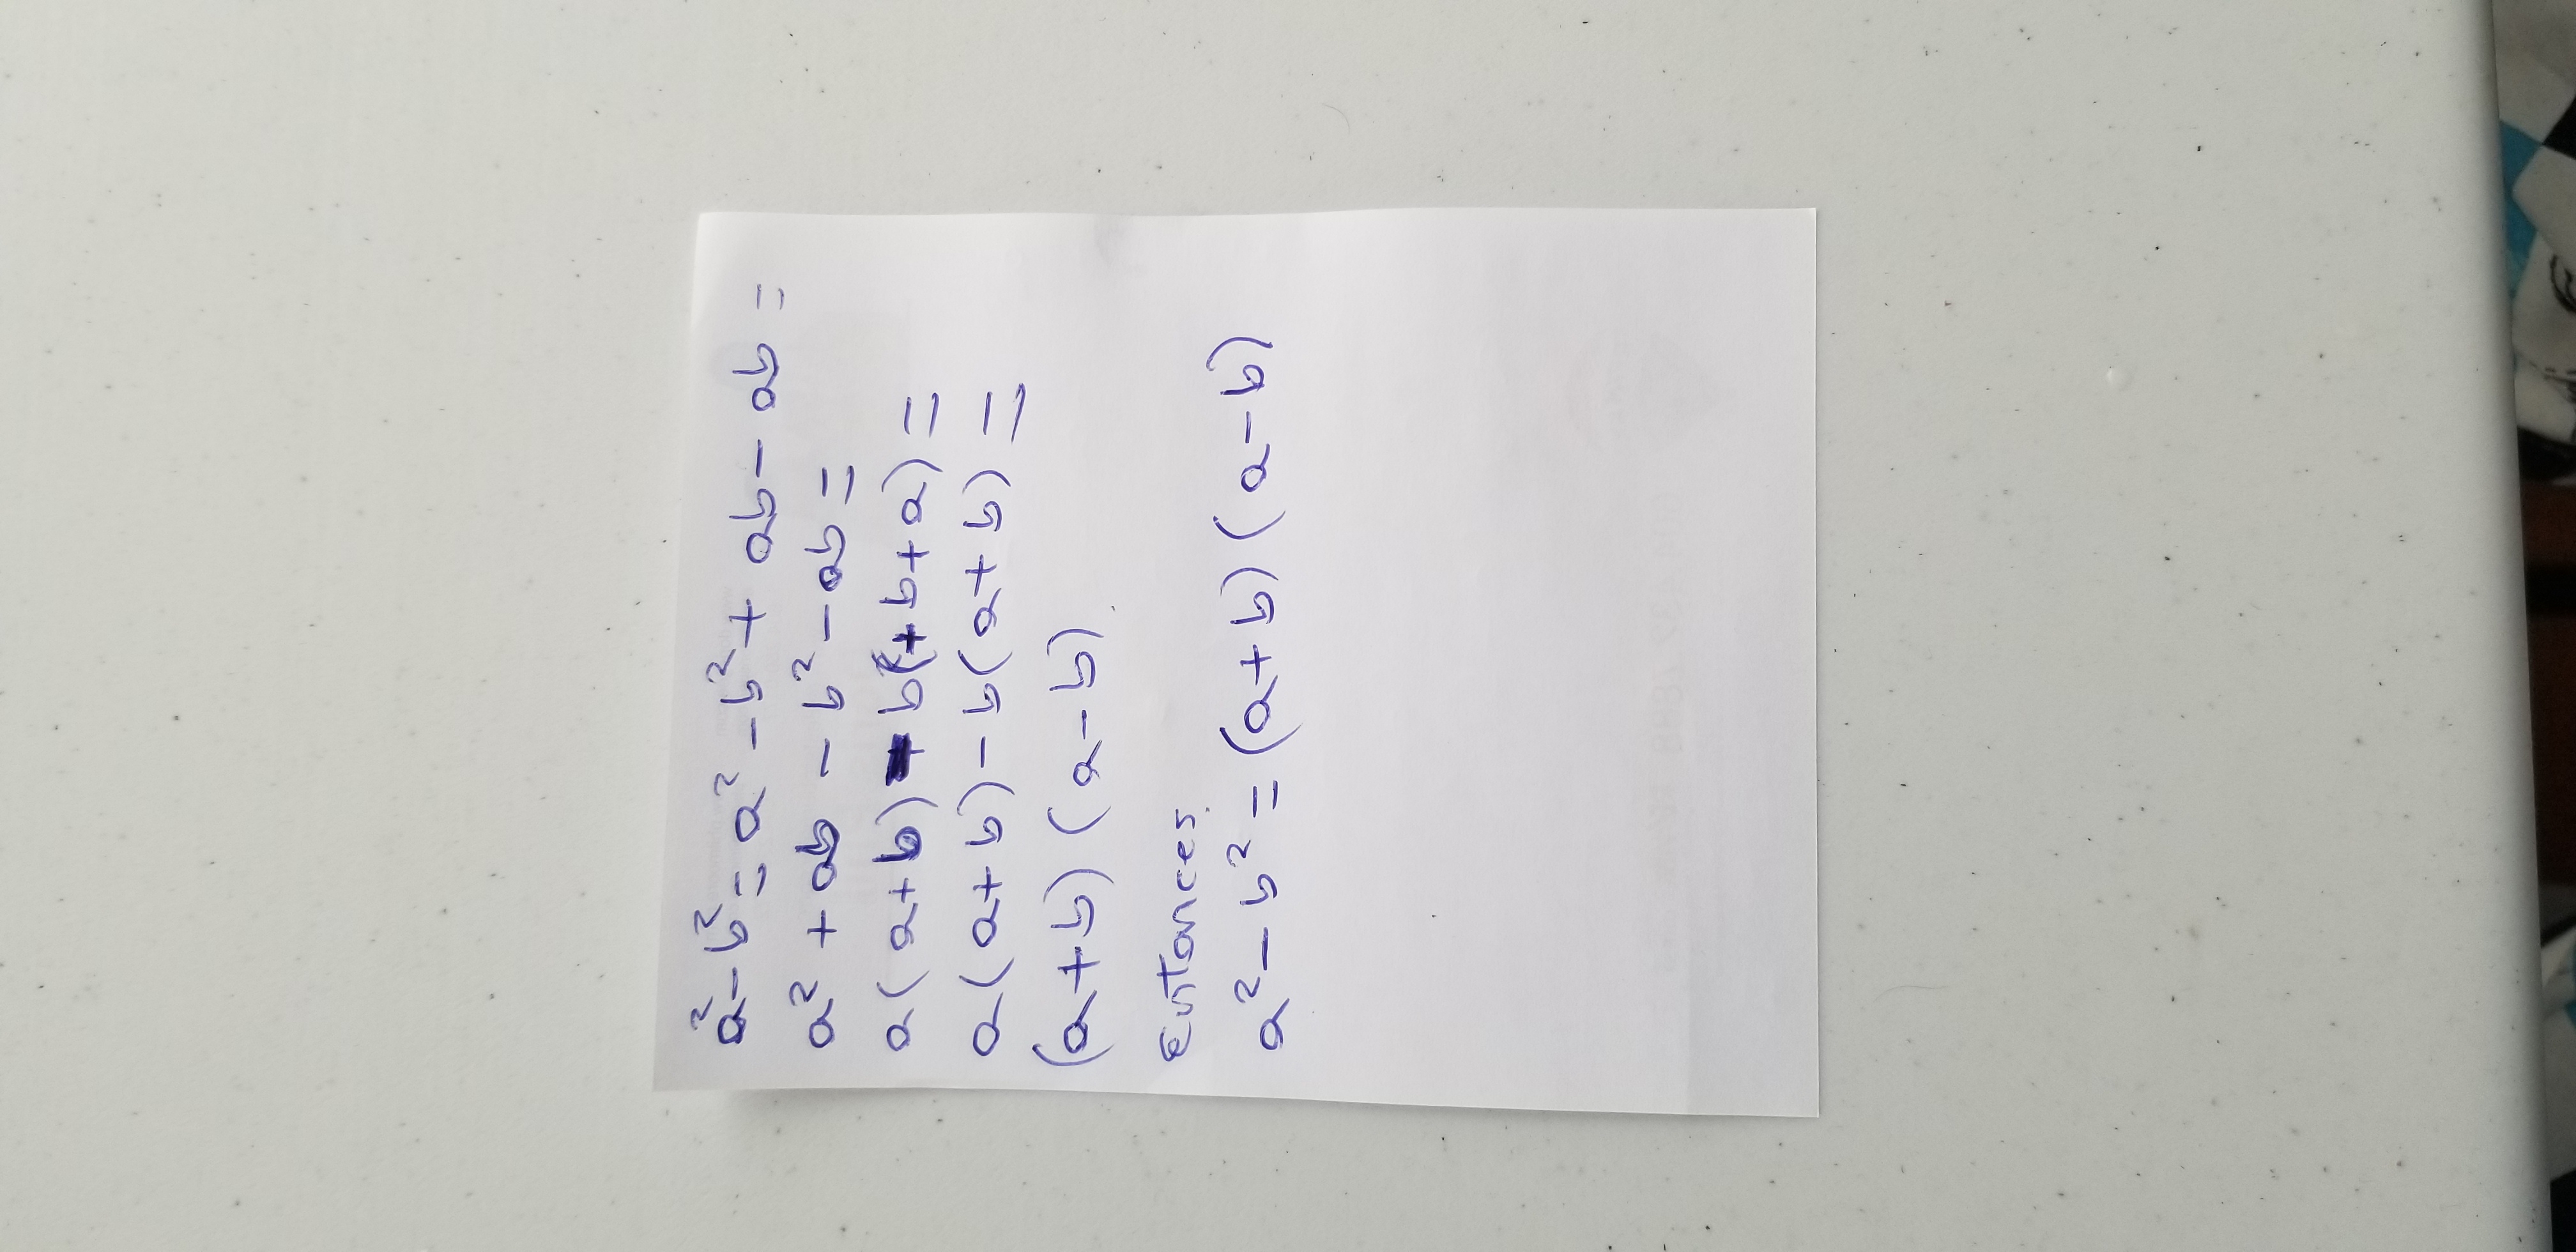 a² - b² = a² - b² + ab - ab =
a² + ab - b² - ab =
a(a + b) - b(+ b + a) =
a(a + b) - b(a + b) =
(a + b) (a - b)
Entonces
a² - b² = (a + b) (a - b)